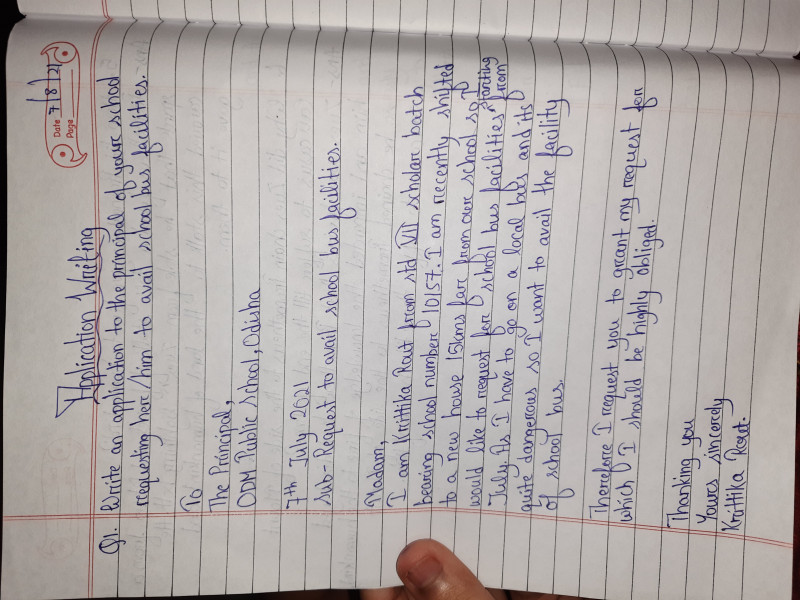 Date 7/8/21
Page
Application Writing
Q1. Write an application to the principal of your school
requesting her/him to avail school bus facilities.
To
The Principal,
ODM Public School, Odisha
7th July 2021
Sub- Request to avail school bus facilities.
Madam,
I am Krittika Rout from std VII scholar batch
bearing school number 10157. I am recently shifted
to a new house 15kms far from our school so I
would like to request for school bus facilities starting from
July. As I have to go on a local bus and its
quite dangerous so I want to avail the facility
of school bus.
Therefore I request you to grant my request for
which I should be highly obliged.
Thanking you
Yours sincerely
Krittika Rout.